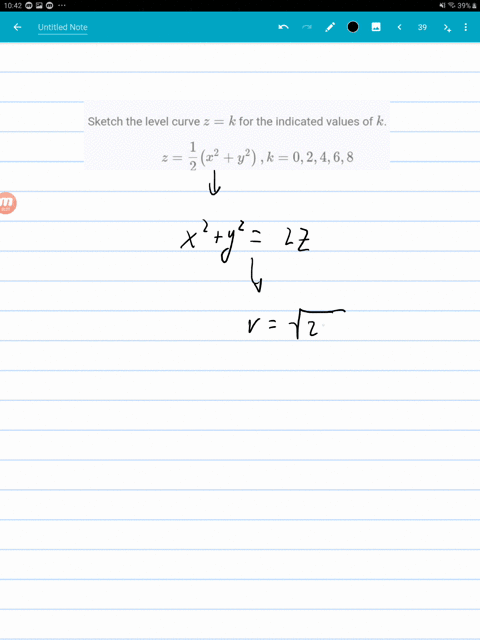 10:42 39%
Untitled Note 39
Sketch the level curve z = k for the indicated values of k.
z = 1/2 (x² + y²), k = 0, 2, 4, 6, 8
x² + y² = 2z
r = √2